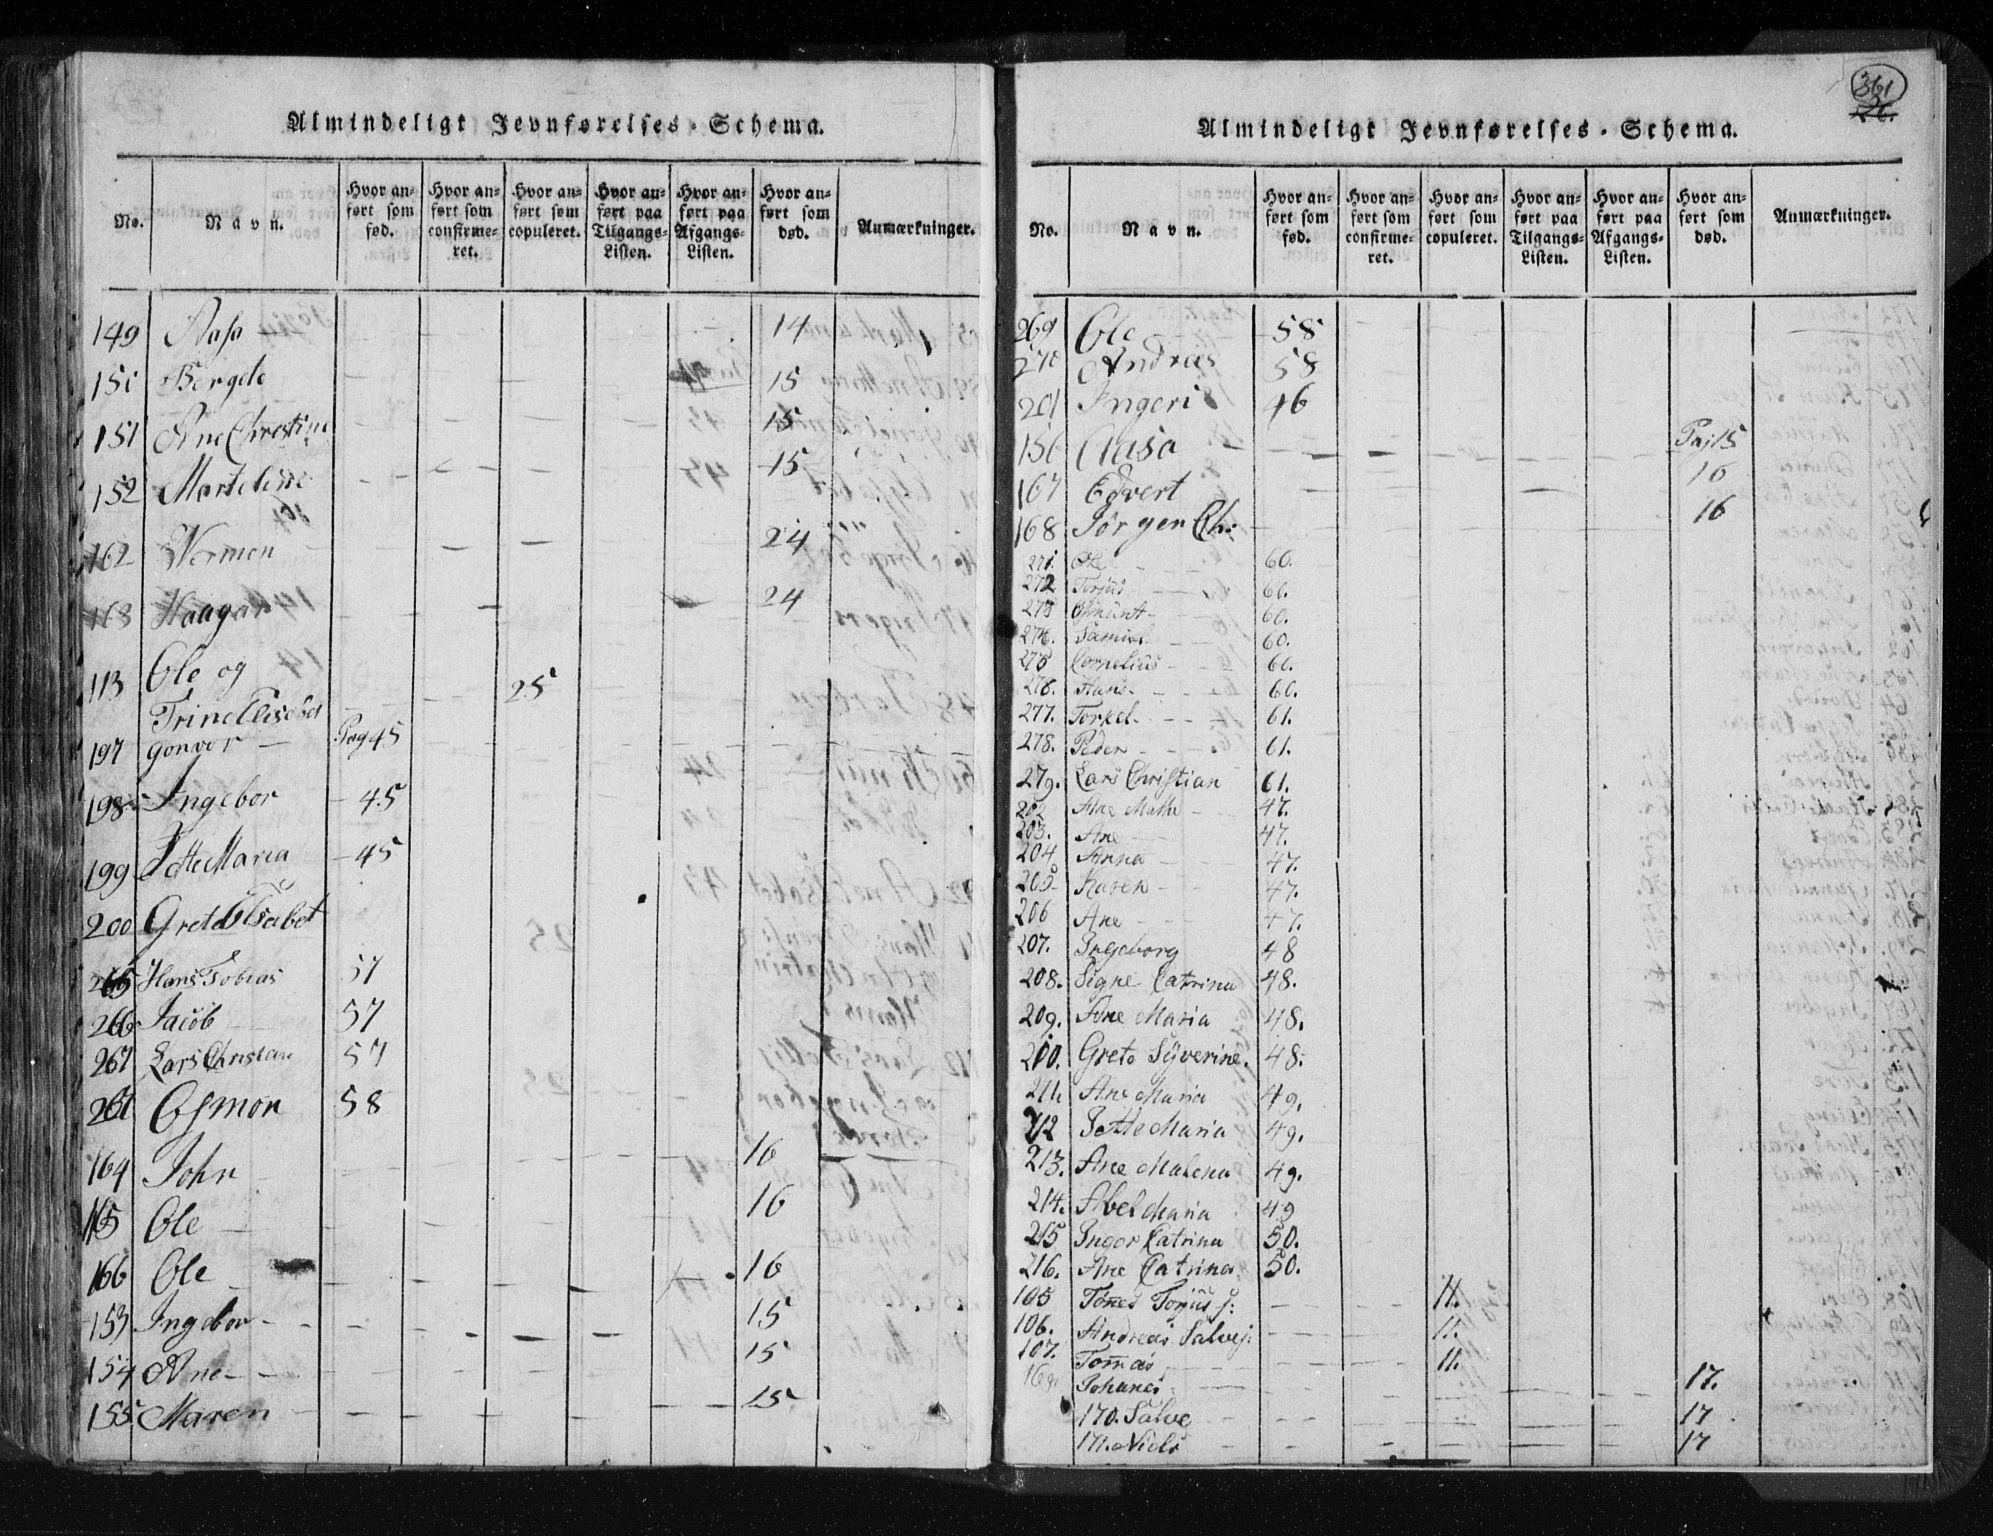 Almindeligt Jevnførelses-Schema.
No. Navn. Hvor anført som fød. Hvor anført som confirmeret. Hvor anført som copuleret. Hvor anført paa Tilgangs-Listen. Hvor anført paa Afgangs-Listen. Hvor anført som død. Anmærkninger.
149 Aasa 14
150 Bergete 15
151 Ane Christine 15
152 Marteline 15
162 24
163 Haagan 24
113 Ole og
Trine Elisabet 25
197 Gonvor Pag 45
198 Ingebor 45
199 Jette Maria 45
200 Grete Elisabet
265 Hans Tobias 57
266 Jacob 57
267 Lars Christian 57
Osmon 58
164 John 16
165 Ole 16
166 Ole 16
153 Ingebor 15
154 Ane 15
155 Maren 15
361
Almindeligt Jevnførelses-Schema.
No. Navn. Hvor anført som fød. Hvor anført som confirmeret. Hvor anført som copuleret. Hvor anført paa Tilgangs-Listen. Hvor anført paa Afgangs-Listen. Hvor anført som død. Anmærkninger.
269 Ole 58
270 Andreas 58
201 Ingeri 46
156 Aasa Pag 15
167 Edvert 16
168 Jörgen Ch: 16
271. Ole 60.
272 Torjus 60.
273 Osmunt 60.
274. Samuel 60.
275 Cornelius 60.
276. Hans 60.
277. Torkel 61.
278. Peder 61.
279. Lars Christian 61.
202 Ane Mathe 47.
203. Ane 47.
204 Anna 47.
205 Karen 47.
206 Ane 47.
207. Ingeborg 48
208. Signe Catrina 48.
209. Ane Maria 48.
210. Grete Syverine. 48.
211. Ane Maria 49.
212 Jette Maria 49.
213. Ane Malena 49.
214. Abel Maria 49
215 Inger Catrina 50.
216. Ane Catrina 50.
105 Tönnes Torjus s: 11.
106. Andreas Salves: 11.
107. Tomas 11.
169 Johanes 17.
170. Salve 17
171. Niels 17